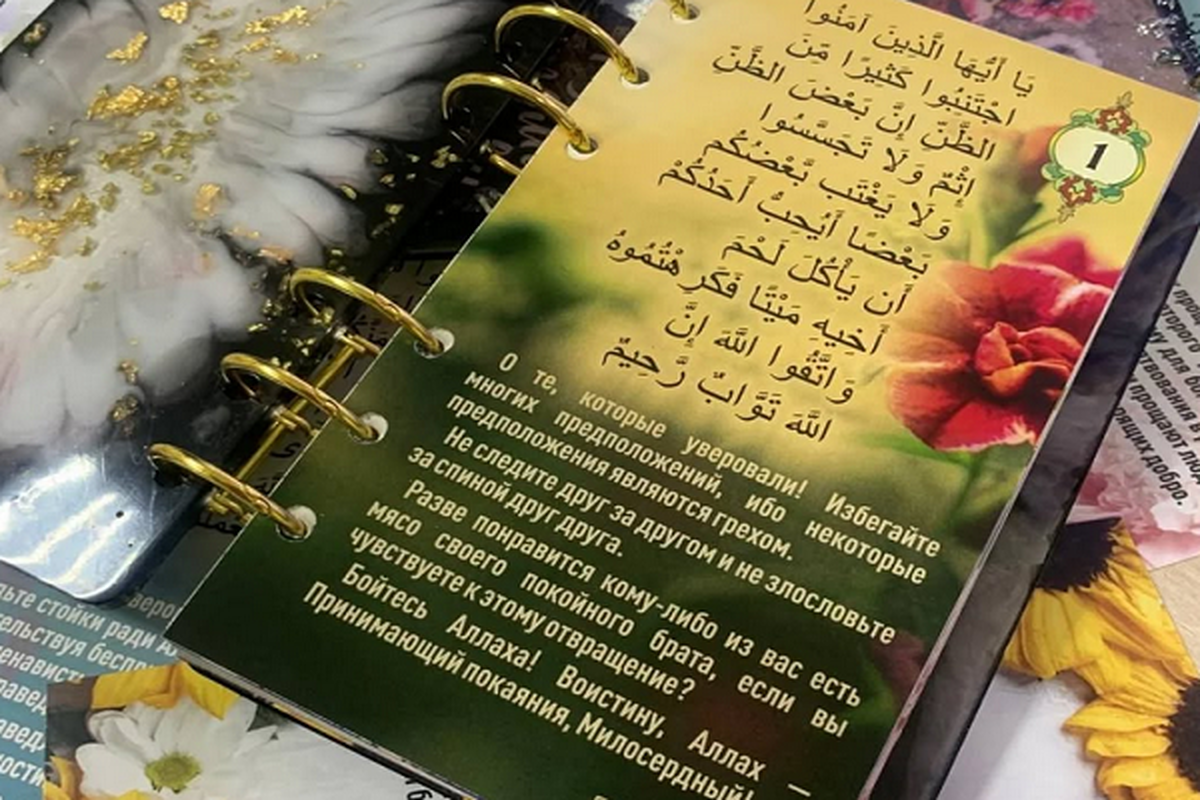 يَا أَيُّهَا الَّذِينَ آمَنُوا
اجْتَنِبُوا كَثِيرًا مِّنَ
الظَّنِّ إِنَّ بَعْضَ الظَّنِّ
إِثْمٌ وَلَا تَجَسَّسُوا
وَلَا يَغْتَب بَّعْضُكُم
بَعْضًا أَيُحِبُّ أَحَدُكُمْ
أَن يَأْكُلَ لَحْمَ
أَخِيهِ مَيْتًا فَكَرِهْتُمُوهُ
وَاتَّقُوا اللَّهَ إِنَّ
اللَّهَ تَوَّابٌ رَّحِيمٌ
1
О те, которые уверовали! Избегайте
многих предположений, ибо некоторые
предположения являются грехом.
Не следите друг за другом и не злословьте
за спиной друг друга.
Разве понравится кому-либо из вас есть
мясо своего покойного брата, если вы
чувствуете к этому отвращение?
Бойтесь Аллаха! Воистину, Аллах —
Принимающий покаяния, Милосердный!
стойки ради
прощают
добро.